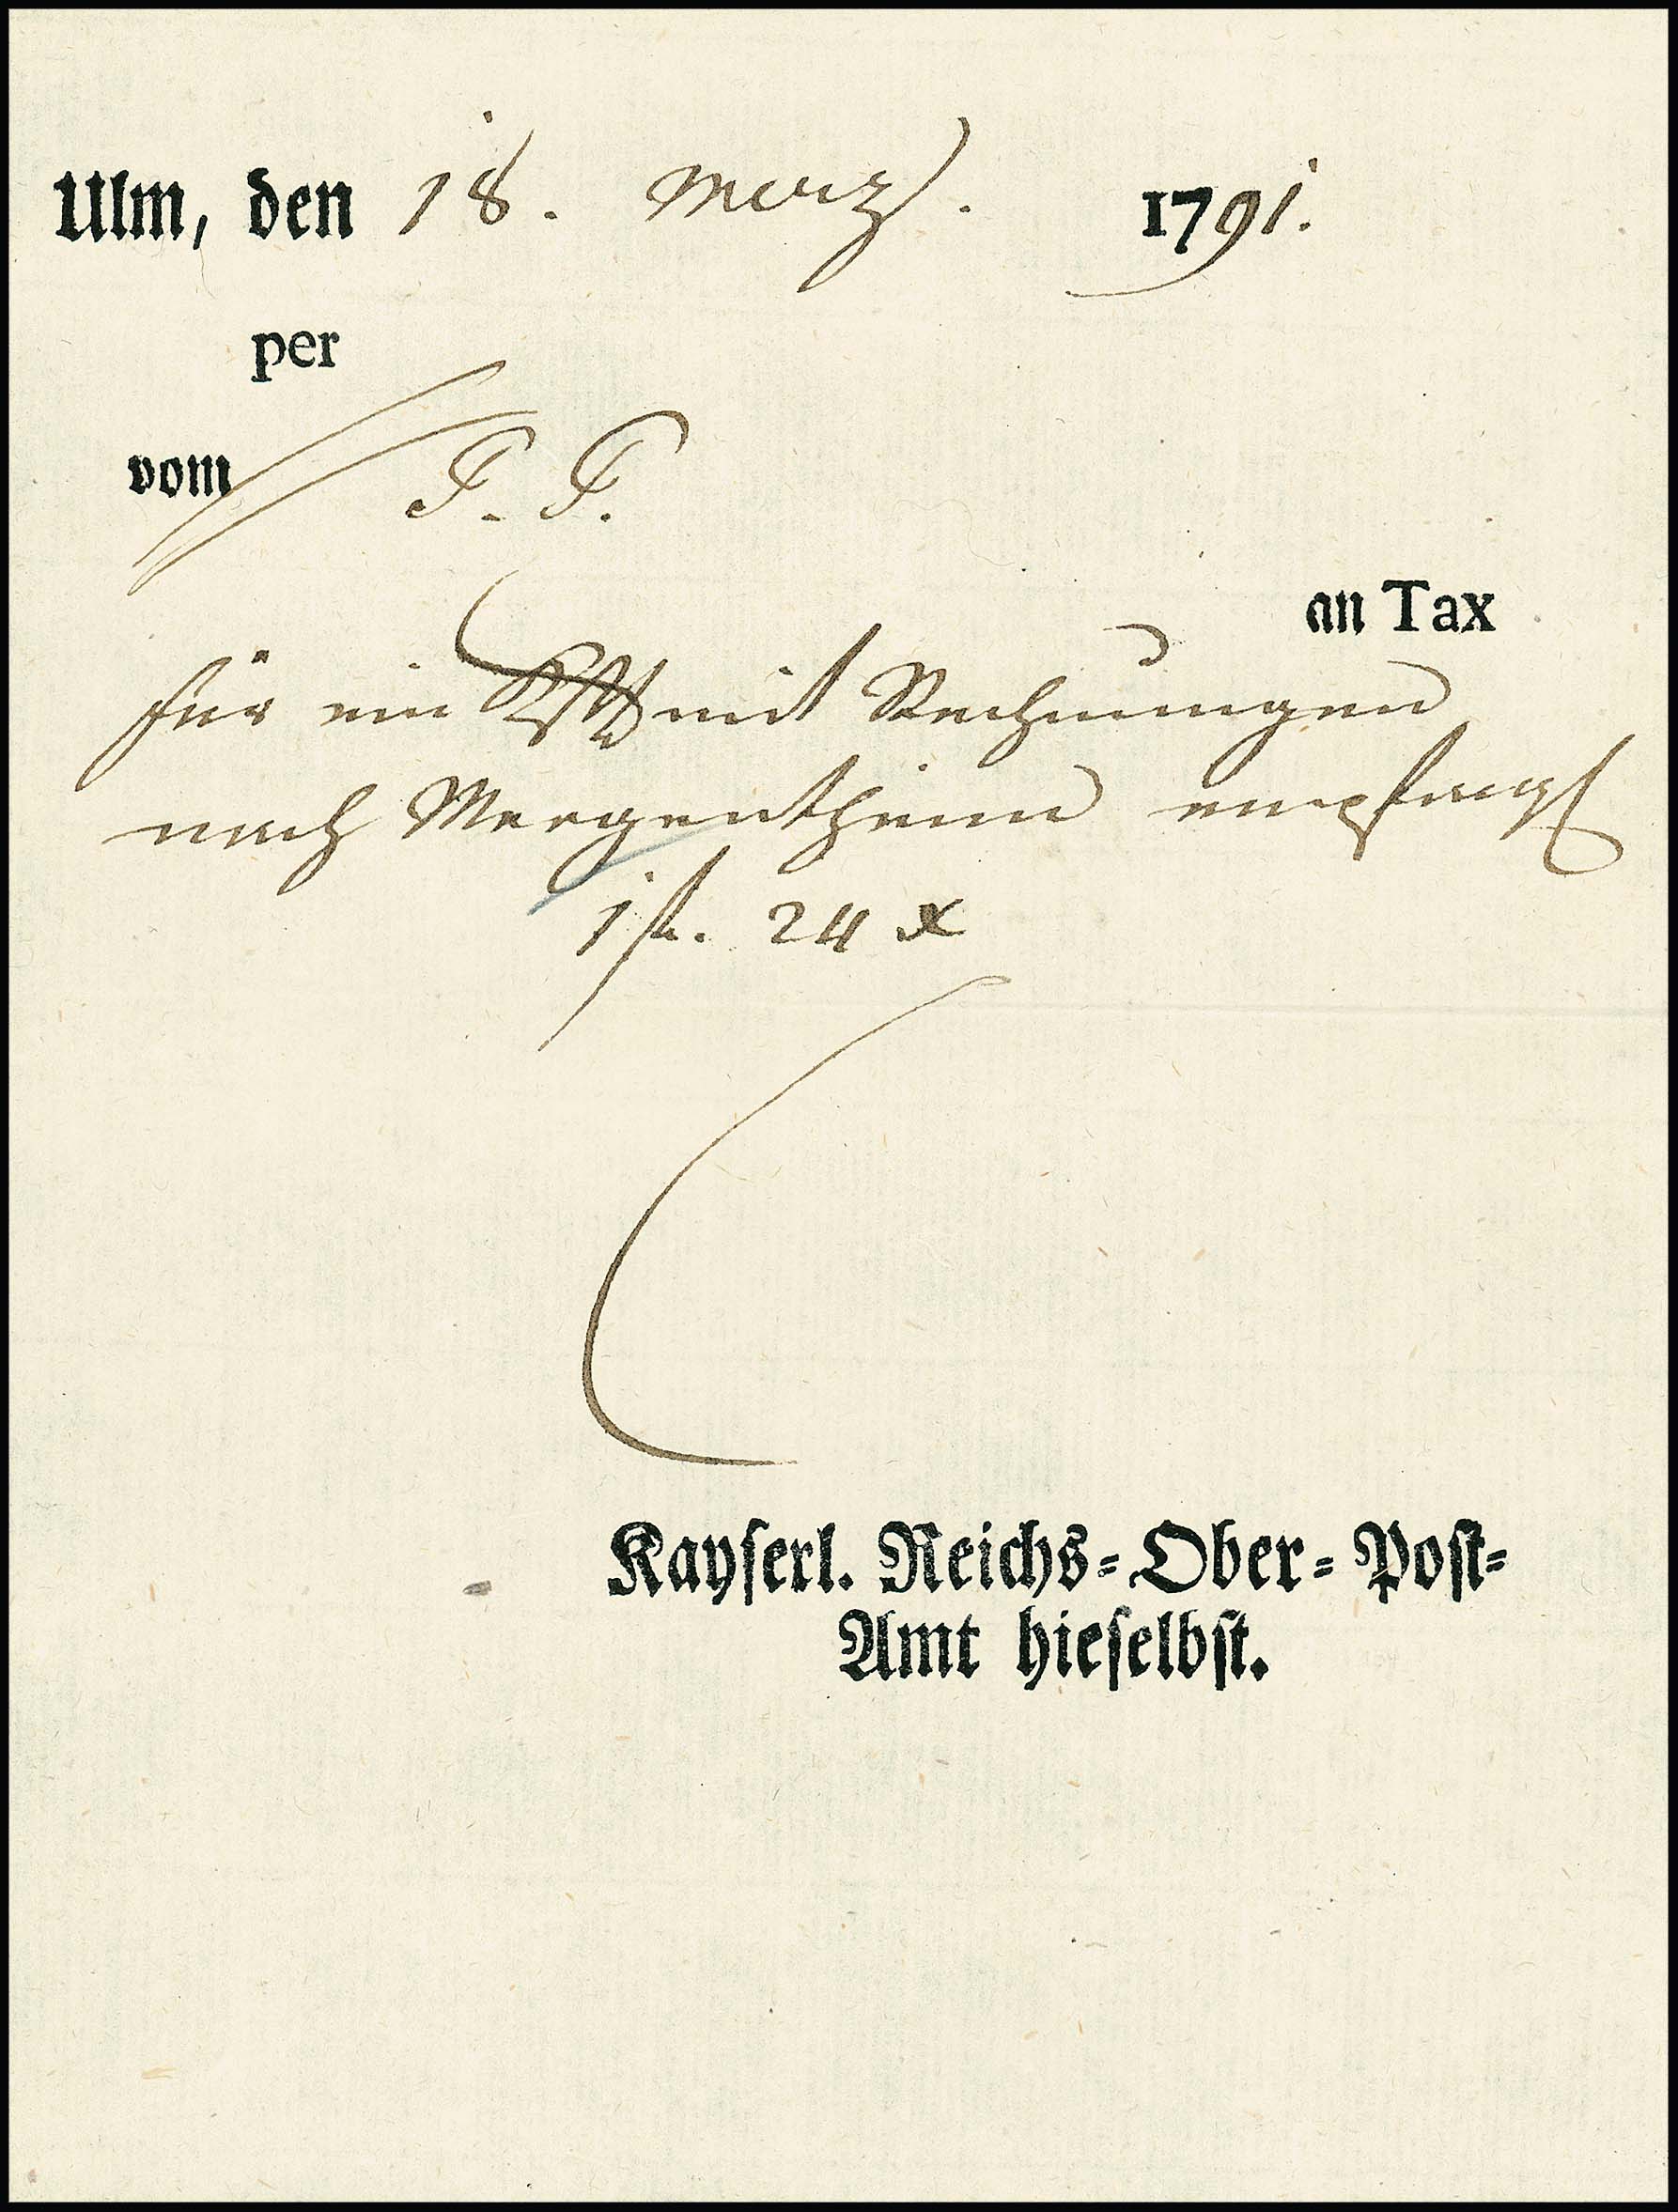 Ulm, den 18. Merz. 1791.
per
vom T. T.
an Tax
für ein mit Rechnungen
nach Mergentheim
1 fl. 24 x
Kayſerl. Reichs-Ober-Poſt-
Amt hieſelbſt.